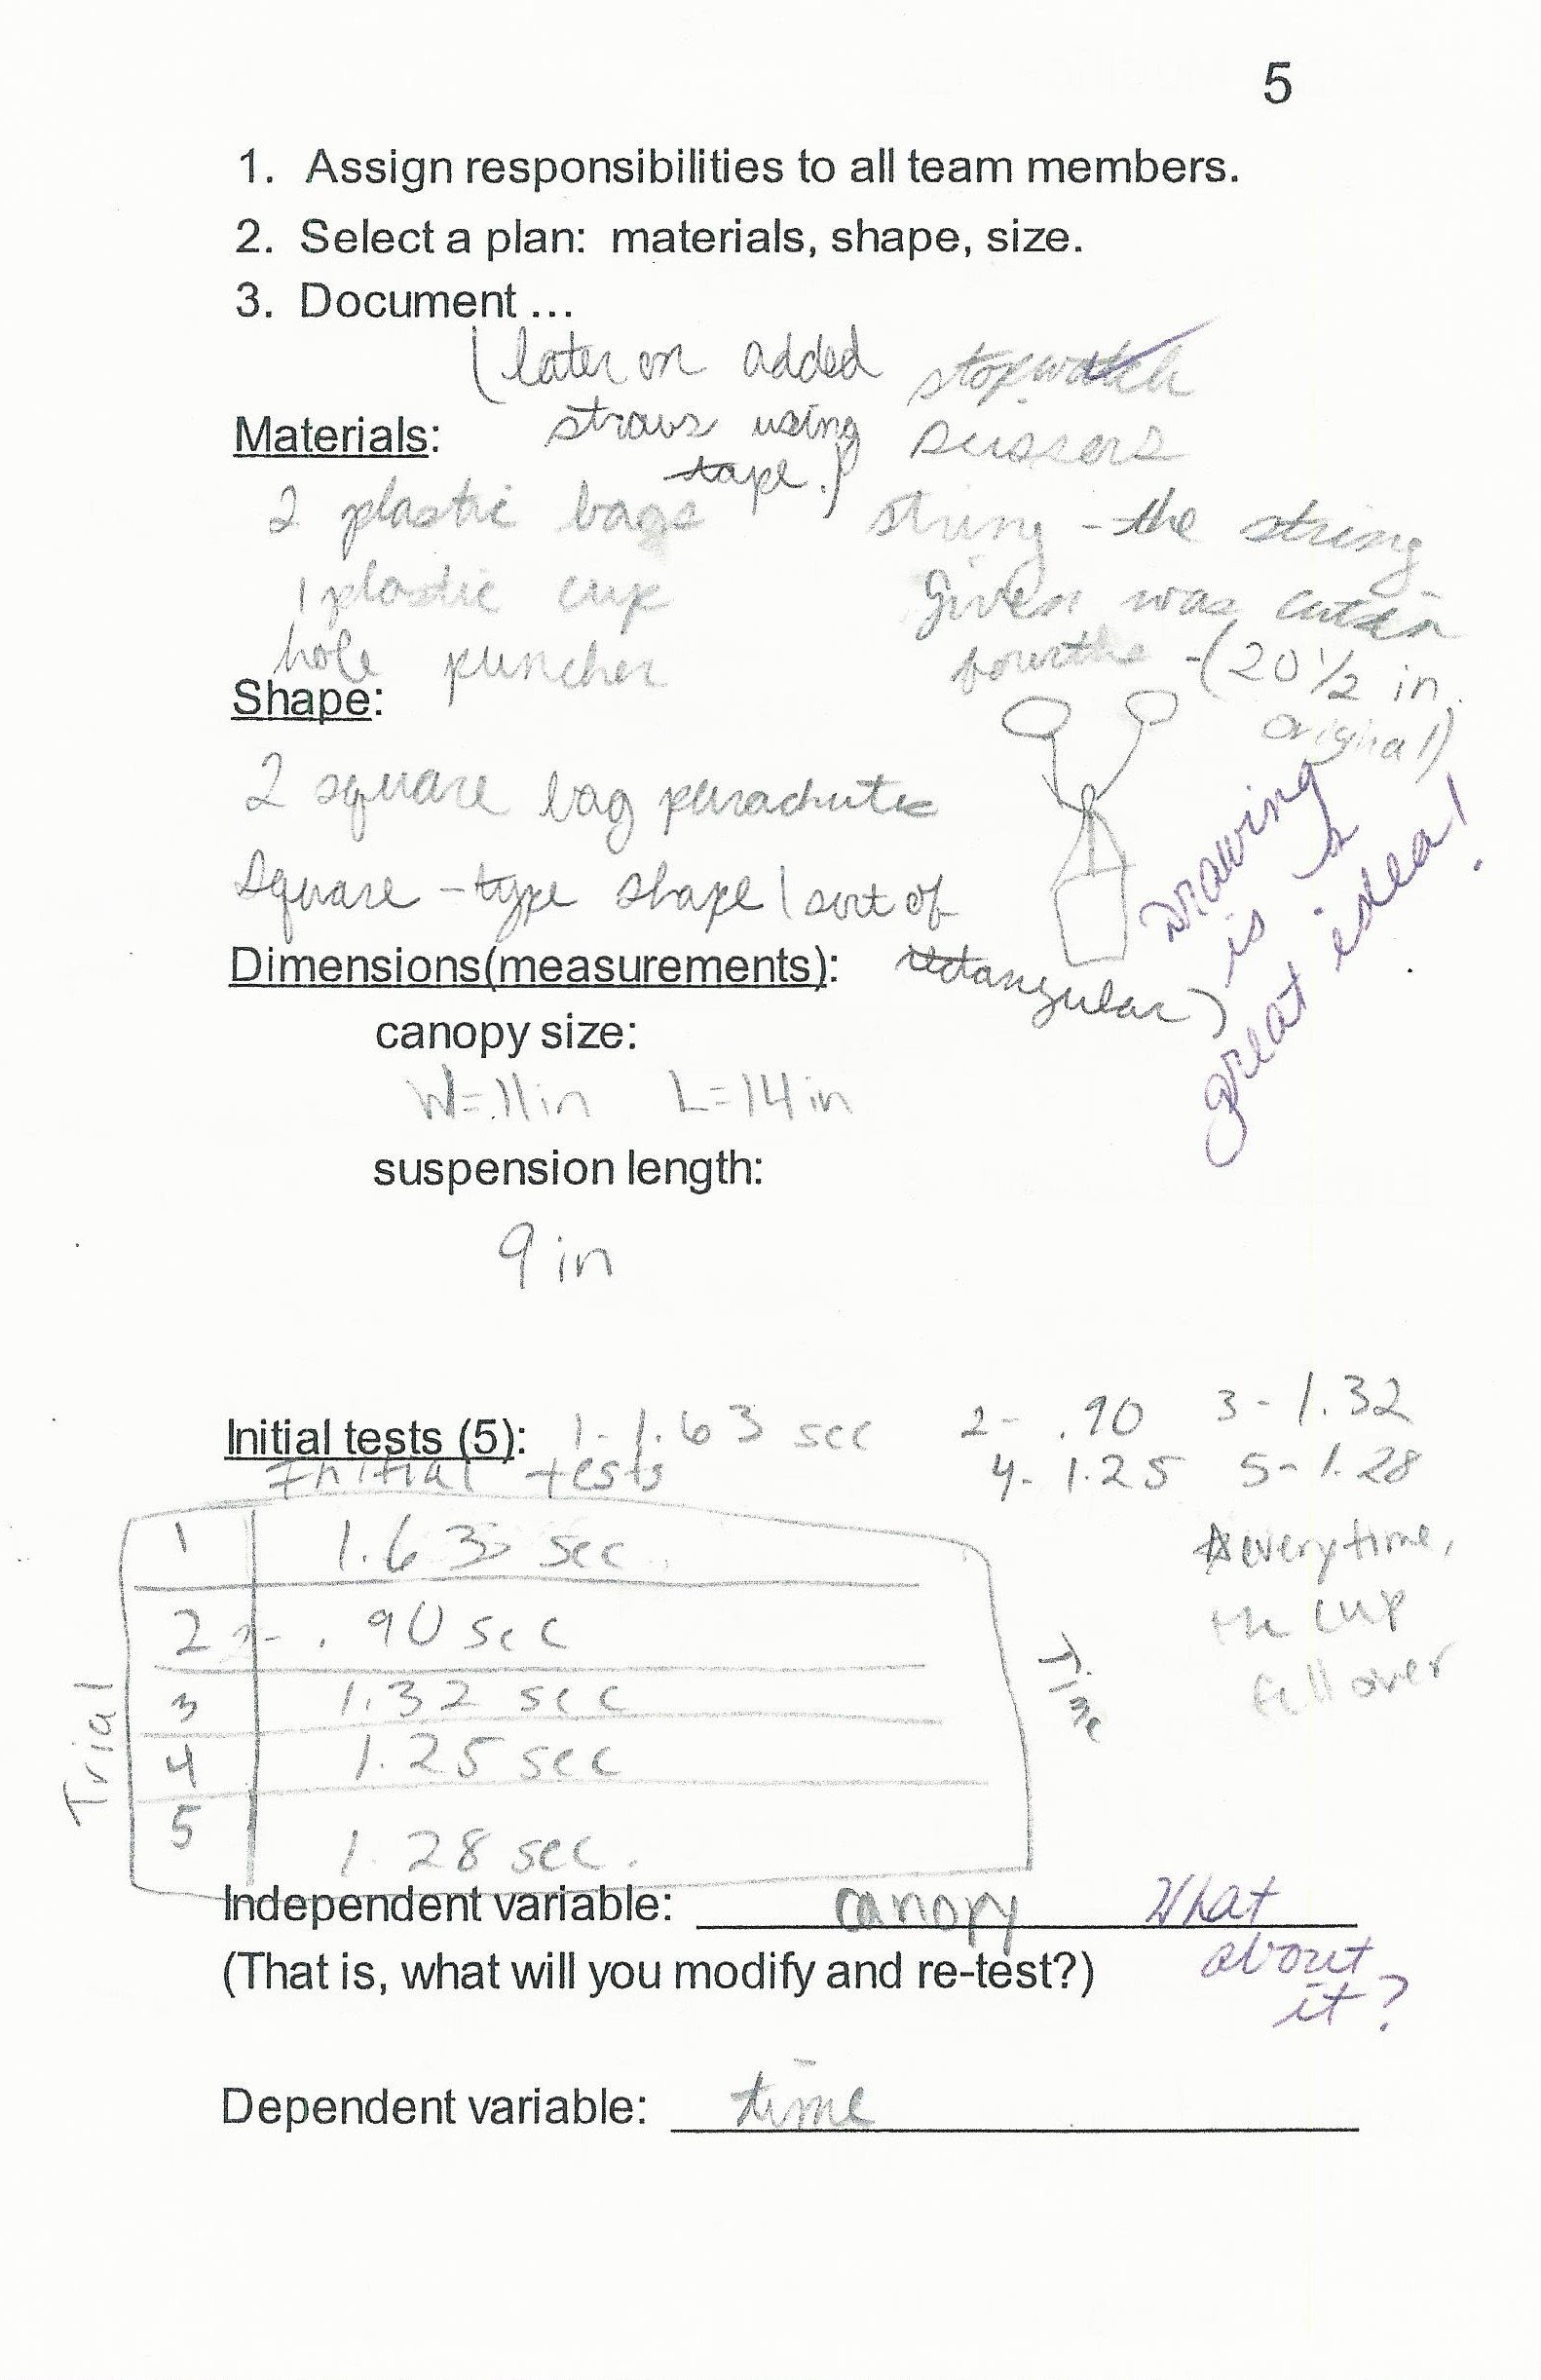 5
1. Assign responsibilities to all team members.
2. Select a plan: materials, shape, size.
3. Document ...
(later on added
straws using
tape.)
stopwatch
scissors
Materials:
2 plastic bags
1 plastic cup
hole puncher
string - the string
given was cut in
fourths - (20 1/2 in.
original)
Shape:
2 square bag parachutes
Square-type shape (sort of
rectangular)
Drawing
is a
great idea!
Dimensions(measurements):
canopy size:
W=11in L=14in
suspension length:
9 in
Initial tests (5): 1- 1.63 sec 2- .90 3- 1.32
4- 1.25 5- 1.28
Initial tests
1 1.63 sec.
2 2- .90 sec
3 1.32 sec
4 1.25 sec
5 1.28 sec.
Trial
Time
everytime,
the cup
fell over
Independent variable: canopy
(That is, what will you modify and re-test?)
What
about
it?
Dependent variable: time